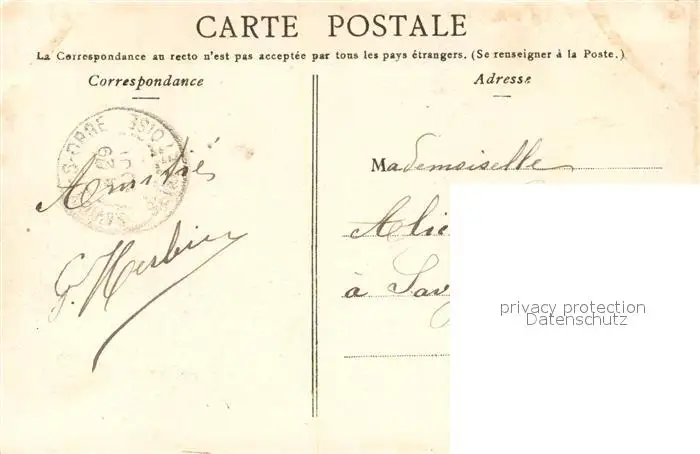 CARTE POSTALE
La Correspondance au recto n'est pas acceptée par tous les pays étrangers. (Se renseigner à la Poste.)
Correspondance
Adresse
Amitiés
Mademoiselle
à Sav
privacy protection
Datenschutz